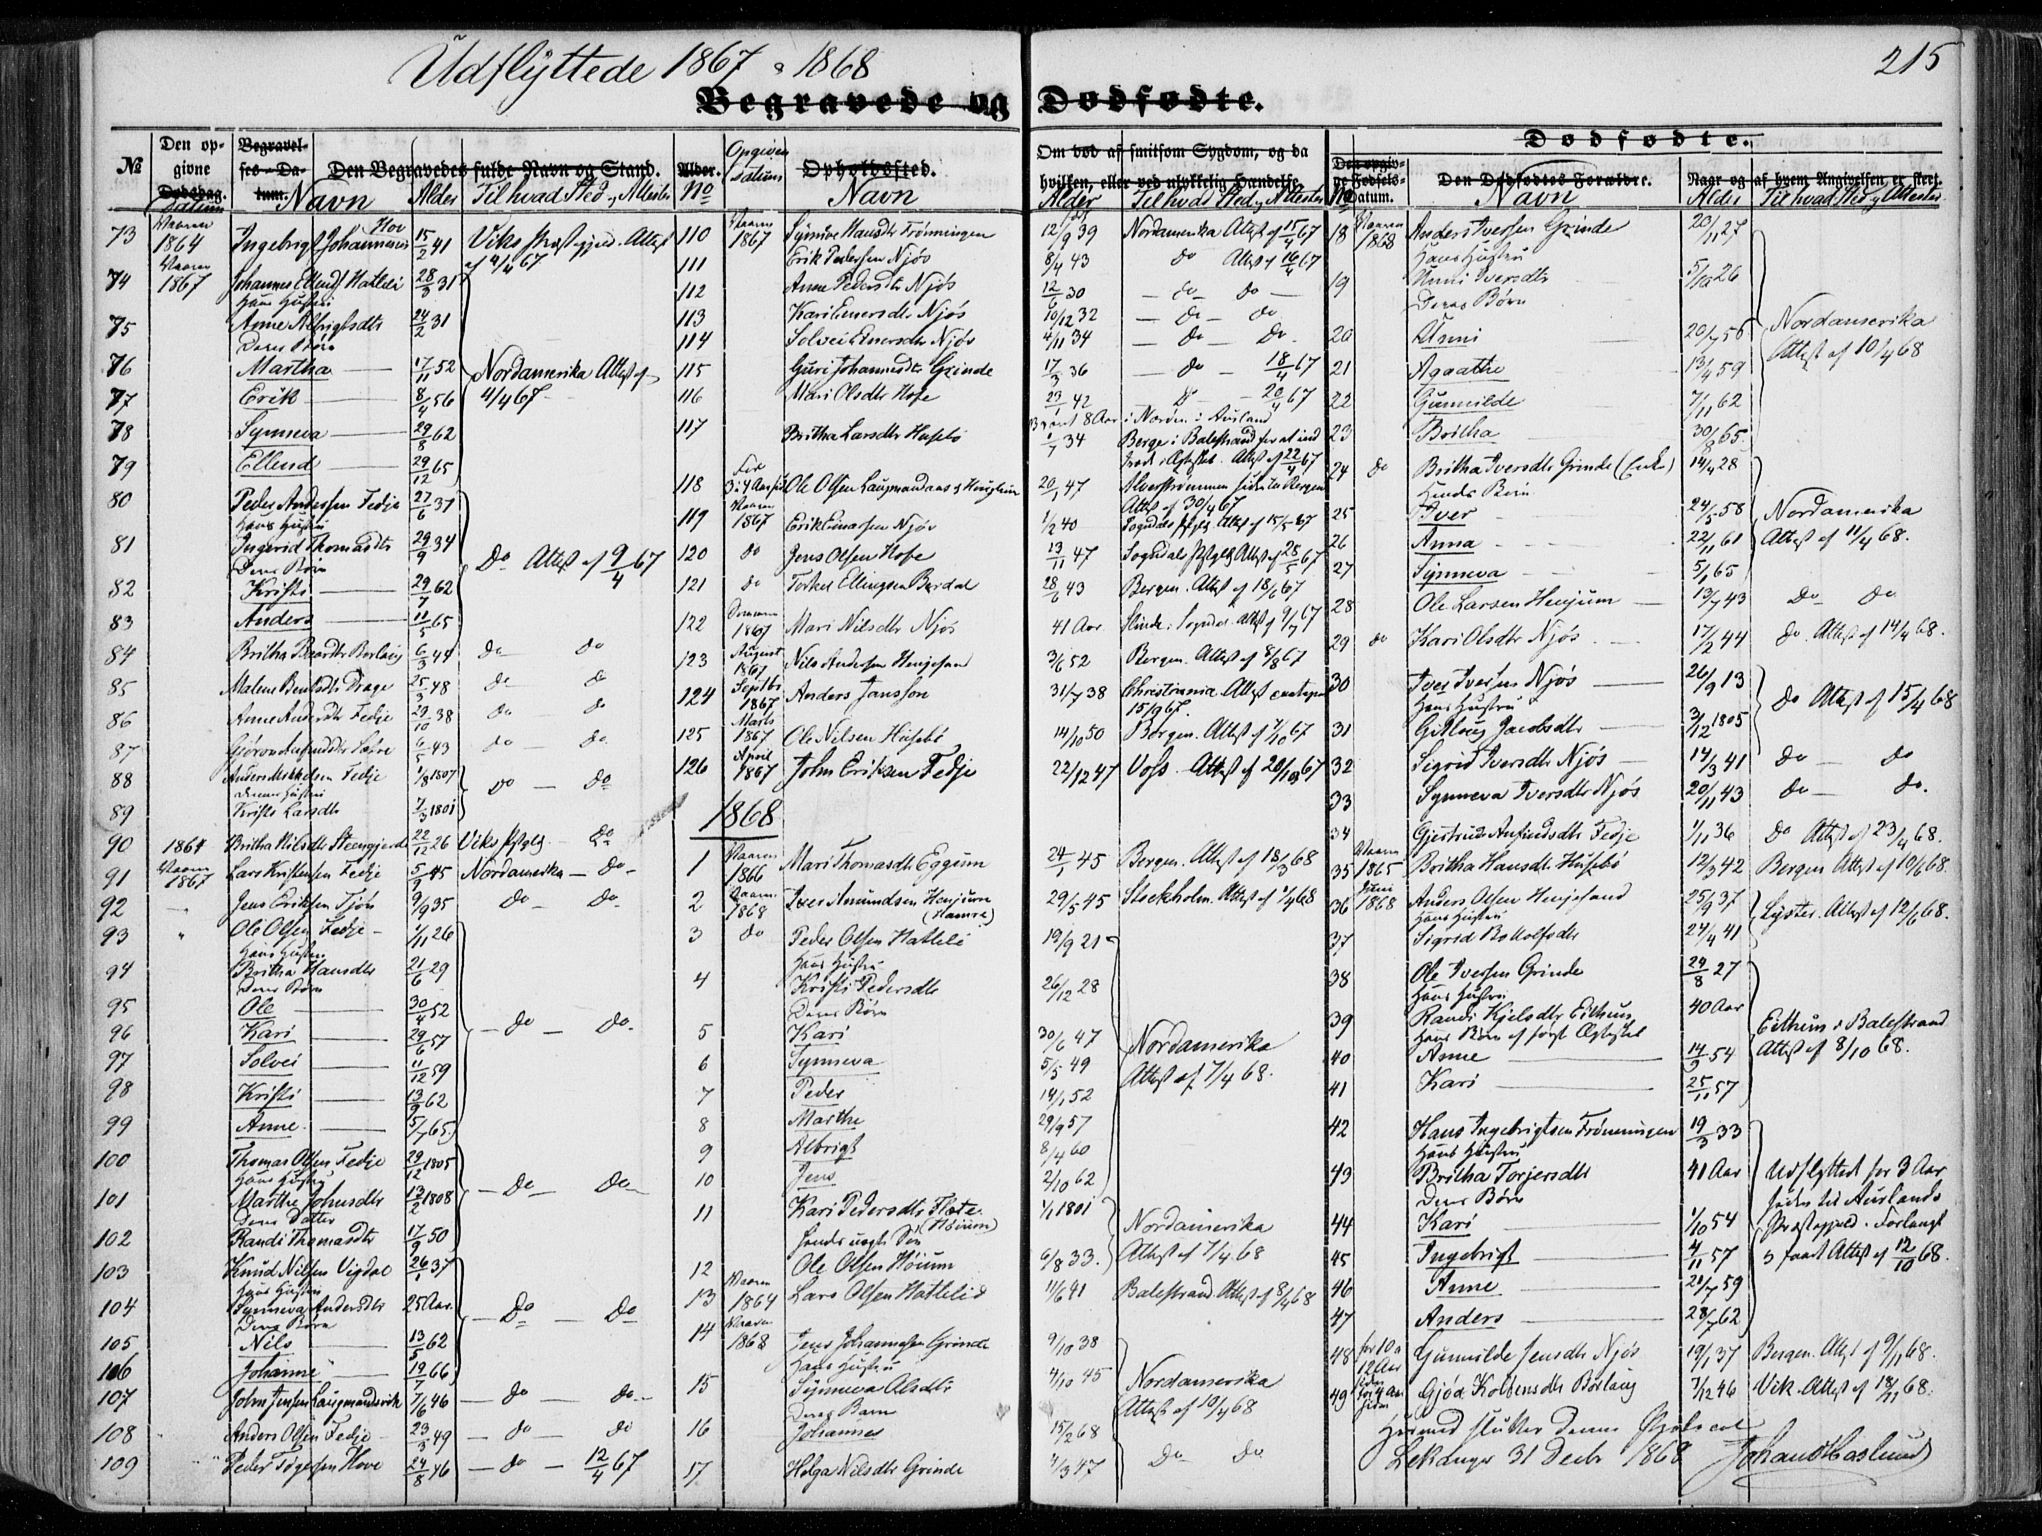 Udflyttede 1867 & 1868
215
Begravede og Dødfødte.
No
Den opgivne Dødsdag. Datum
Begravelses-Datum.
Den Begravedes fulde Navn og Stand.
Navn
Alder
Til hvad Sted og Attester
Alder.
No
Opgiven Datum
Opholdssted.
Navn
Om død af smitsom Sygdom, og da hvilken, eller ved ulykkelig Hændelse.
Alder
Til hvad Sted og Attester
Dødfødte.
Den opgivne Fødsels-Datum.
Den Dødfødtes Forældre.
Navn
Naar og af hvem Angivelsen er skeet.
Alder
Til hvad Sted og Attester
73 Vaaren 1864 Ingebrigt Johannesen Hov 15/2 41 Viks Præstegjeld. Attest af 4/4 67
74 Vaaren 1867 Johannes Ellends. Hatleli 28/3 31
Hans Hustru
75 Anne Albrigtsdtr 24/2 31
Deres Børn
76 Martha 17/11 52 Nordamerika Attest af 4/4 67
77 Erik 8/4 56
78 Synneva 29/8 62
79 Ellend 29/12 65
80 Peder Andersen Fedje 27/6 37
Hans Hustru
81 Ingerid Thomasdtr 29/9 34
Deres Børn
Do Attest af 9/4 67
82 Kristi 29/7 62
83 Anders 11/5 65
84 Britha Baardtr Borlaug 6/3 44 Do Do
85 Malene Bentsdtr Drage 25/3 48 Do Do
86 Anne Andersdtr Fedje 29/10 38 Do Do
87 6/5 43 Do Do
88 Anders Mikkelsen Fedje 1/8 1807
Hustru
Do Do
89 Kristi Larsdtr 7/3 1801
90 1864 Britha Nilsdtr Steengjerde 22/11 26 Viks Pstgld Do
91 Vaaren 1867 Lars Kristensen Fedje 5/9 45 Nordamerika Do
92 Jens Eriksen Fjør 9/9 35 Do Do
93 Ole Olsen Fedje 1/11 26
Hans Hustru
94 Britha Hansdtr 21/6 29
Deres Børn
95 Ole 30/4 52
96 Kari 29/6 57 Do Do
97 Solvei 11/12 59
98 Kristi 13/9 62
99 Anne 5/7 65
100 Thomas Olsen Fedje 29/12 1805
Hans Hustru
101 Marthe Johnsdtr 13/2 1808 Do Do
Deres Datter
102 Randi Thomasdtr 17/9 50
103 Knud Nilsen Vigdal 26/1 37
Hans Hustru
104 Synneva Andersdtr 25 Aar Do Do
Deres Børn
105 Nils 13/5 62
106 Johanne 19/7 66
107 John Jensen Laugmandsvik 7/6 46 Do Do
108 Anders Olsen Fedje 23/3 49 Do Do
109 Peder Tøgersen Hove 24/8 46 Do 12/4 67
110 Vaaren 1867 Synneve Hansdtr Frønningen 12/9 39 Nordamerika Attest af 15/4 67
111 Erik Pedersen Njøs 8/4 43 Do Attest 16/4 67
112 Anna Pedersdtr Njøs 12/6 30 Do Do
113 Kari Einersdtr Njøs 10/12 32 Do Do
114 Solvei Einersdtr Njøs 4/11 34 Do Do
115 Guri Johannesdtr Grinde 17/3 36 Do 18/4 67
116 Mari Olsdtr Hofe 23/1 42 Do 20/4 67
117 Britha Larsdtr Husebø 1/7 34 Berge i Balestrand for at indtræde i Ægteskab. Attest af 22/4 67
118 For 3 à 4 Aar siden Ole Olsen Laugmandaas 20/1 47 Alverstrømmen siden for Bergen Attest af 30/4 67
119 Vaaren 1867 Erik Einersen Njøs 1/2 40 Sogndals Pstgld Attest af 15/5 67
120 Do Jens Olsen Hofe 13/11 47 Sogndals Pstgld Attest af 28/5 67
121 Do Torkel Ellingsen Berdal 28/6 43 Bergen. Attest af 18/6 67
122 1867 Mari Nilsdtr Njøs 41 Aar Slinde i Sogndal Attest af 9/7 67
123 August 1867 Nils Andersen Henjesand 3/6 52 Bergen. Attest af 8/8 67
124 Septbr 1867 Anders Jansson 31/7 38 Christiania Attest 15/9 67.
125 Marts 1867 Ole Nilsen Husebø 14/10 50 Bergen. Attest af 7/10 67
126 April 1867 John Eriksen Fedje 22/12 47 Voss. Attest af 20/10 67
1868
1 Vaaren 1866 Mari Thomasdtr Eggum 24/1 45 Bergen. Attest af 18/3 68
2 Vaaren 1868 Iver Amundsen Henjum (Hamre) 29/5 45 Stockholm. Attest af 1/4 68
3 Do Peder Olsen Hatleli 19/9 21
Hans Hustru
4 Kristi Pedersdtr 26/12 28
Deres Børn
5 Kari 30/6 47 Nordamerika
6 Synneva 5/5 49 Attest af 7/4 68.
7 Peder 14/1 52
8 Marthe 29/9 57
9 Albrigt 8/4 60
10 Jens 2/10 62
11 Kari Pedersdtr Flete (Høium) 1/1 1801 Nordamerika
Hendes uægte Søn
Attest af 7/4 68
12 Ole Olsen Høium 6/8 33.
13 Vaaren 1864 Lars Olsen Hatleli 11/6 41 Balestrand. Attest af 8/4 68
14 Vaaren 1868 Jens Johannesen Grinde 9/10 38
Hans Hustru
15 Synneva Olsdtr 4/10 45 Nordamerika
Deres Barn
Attest af 10/4 68
16 Johannes 15/2 68
17 Helga Nilsdtr Grinde 4/3 47 Do Do
18 Vaaren 1868 Anders Iversen Grinde 20/11 27
Hans Hustru
19 Unni Iversdtr 5/10 26
Deres Børn
20 Unni 20/7 56 Nordamerika
21 Agaathe 13/4 59 Attest af 10/4 68
22 Gunnilde 7/11 62
23 Britha 30/8 65.
24 Do Britha Iversdtr Grinde (Enke) 14/4 28
Hendes Børn
25 Iver 24/5 58 Nordamerika
26 Anna 22/11 61 Attest af 11/4 68.
27 Synneva 5/1 65
28 Ole Larsen Henjum 13/7 43 Do Do
29 Do Kari Olsdtr Njøs 17/2 44 Do. Attest af 14/4 68.
30 Iver Iversen Njøs 26/9 13
Hans Hustru
Do Attest af 15/4 68
31 Gitlaug Jacobsdtr 3/12 1805
32 Sigrid Iversdtr Njøs 14/3 41 Do Do
33 Synneva Iversdtr Njøs 20/11 43 Do Do.
34 Gjertrud Anfindsdtr Fedje 1/11 36 Do Attest af 23/4 68.
35 Vaaren 1865 Britha Hansdtr Husebø 12/3 42 Bergen Attest af 10/6 68.
36 Juni 1868 Anders Olsen Henjesand 25/9 37
Hans Hustru
Lyster. Attest af 12/6 68.
37 Sigrid Botholfsdtr 24/4 41
38 Ole Iversen Grinde 29/8 27
Hans Hustru
39 Randi Kjelsdtr Eithun 40 Aar Eithun i Balestrand
Hans Børn af først Ægteskab
Attest af 8/10 68.
40 Anne 14/9 54
41 Kari 25/11 57
42 Hans Ingebrigtsen Frønningen 19/3 33
Hans Hustru
43 Britha Torjersdtr 41 Aar Udflyttet for 3 Aar
Deres Børn
siden til Aurlands
44 Kari 1/10 54 Præstegjeld. Forlangt
45 Ingebrigt 4/11 57 & faaet Attest af 12/10 68.
46 Anne 21/7 59
47 Anders 28/7 62
48 for 10 a 12 Aar siden Gunnilde Jensdtr Njøs 19/1 37 Bergen. Attest af 9/11 68.
49 for 4 Aar siden Gjøa Kolbensdtr Borlaug 7/12 46 Vik. Attest af 18/11 68.
Hermed slutter denne Protocol
Lekanger 31 Decbr 1868
Johan Haslund